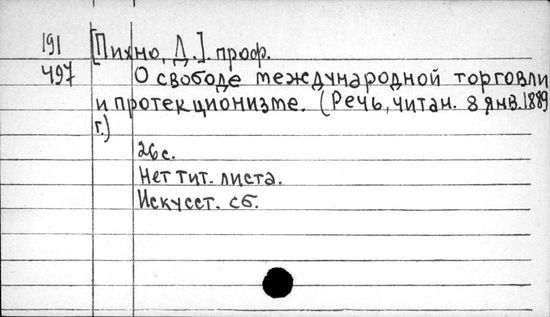 191 [Пихно, Д.]. проф.
497 О свободе международной торговли
и протекционизме. (Речь, читан. 8 янв. 1889
г.)
26 с.
Нет тит. листа.
Искусст. сб.